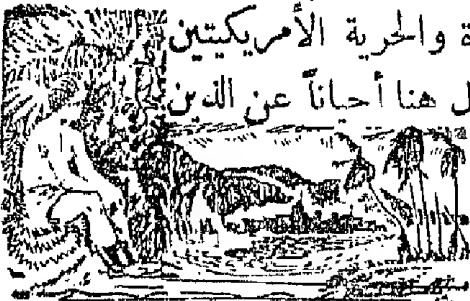 ة والحرية الأمريكيتين
ل هنا أحياناً عن الذين